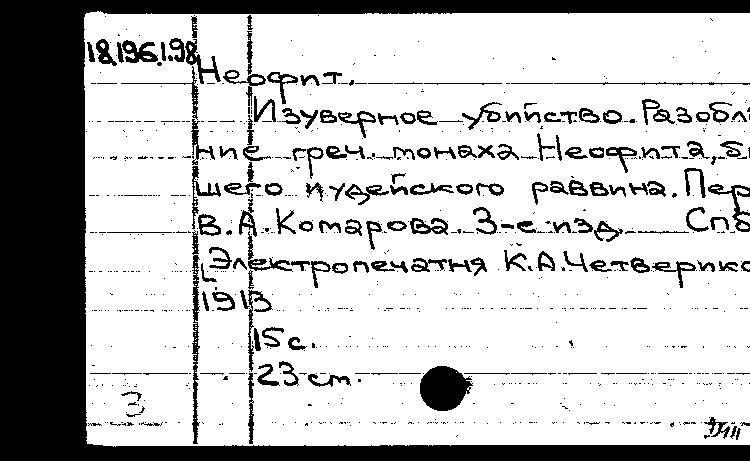 18.196.1.98
Неофит.
Изуверное убийство. Разобла
ние греч. монаха Неофита, б
шего иудейского раввина. Пер
В.А. Комарова. 3-е изд. Спб
[Электропечатня К.А. Четверико
1913
15 с.
23 см.
3